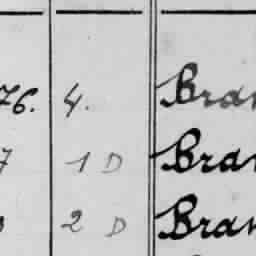 76. 4. Bran
7 1 D Bran
2 D Bran